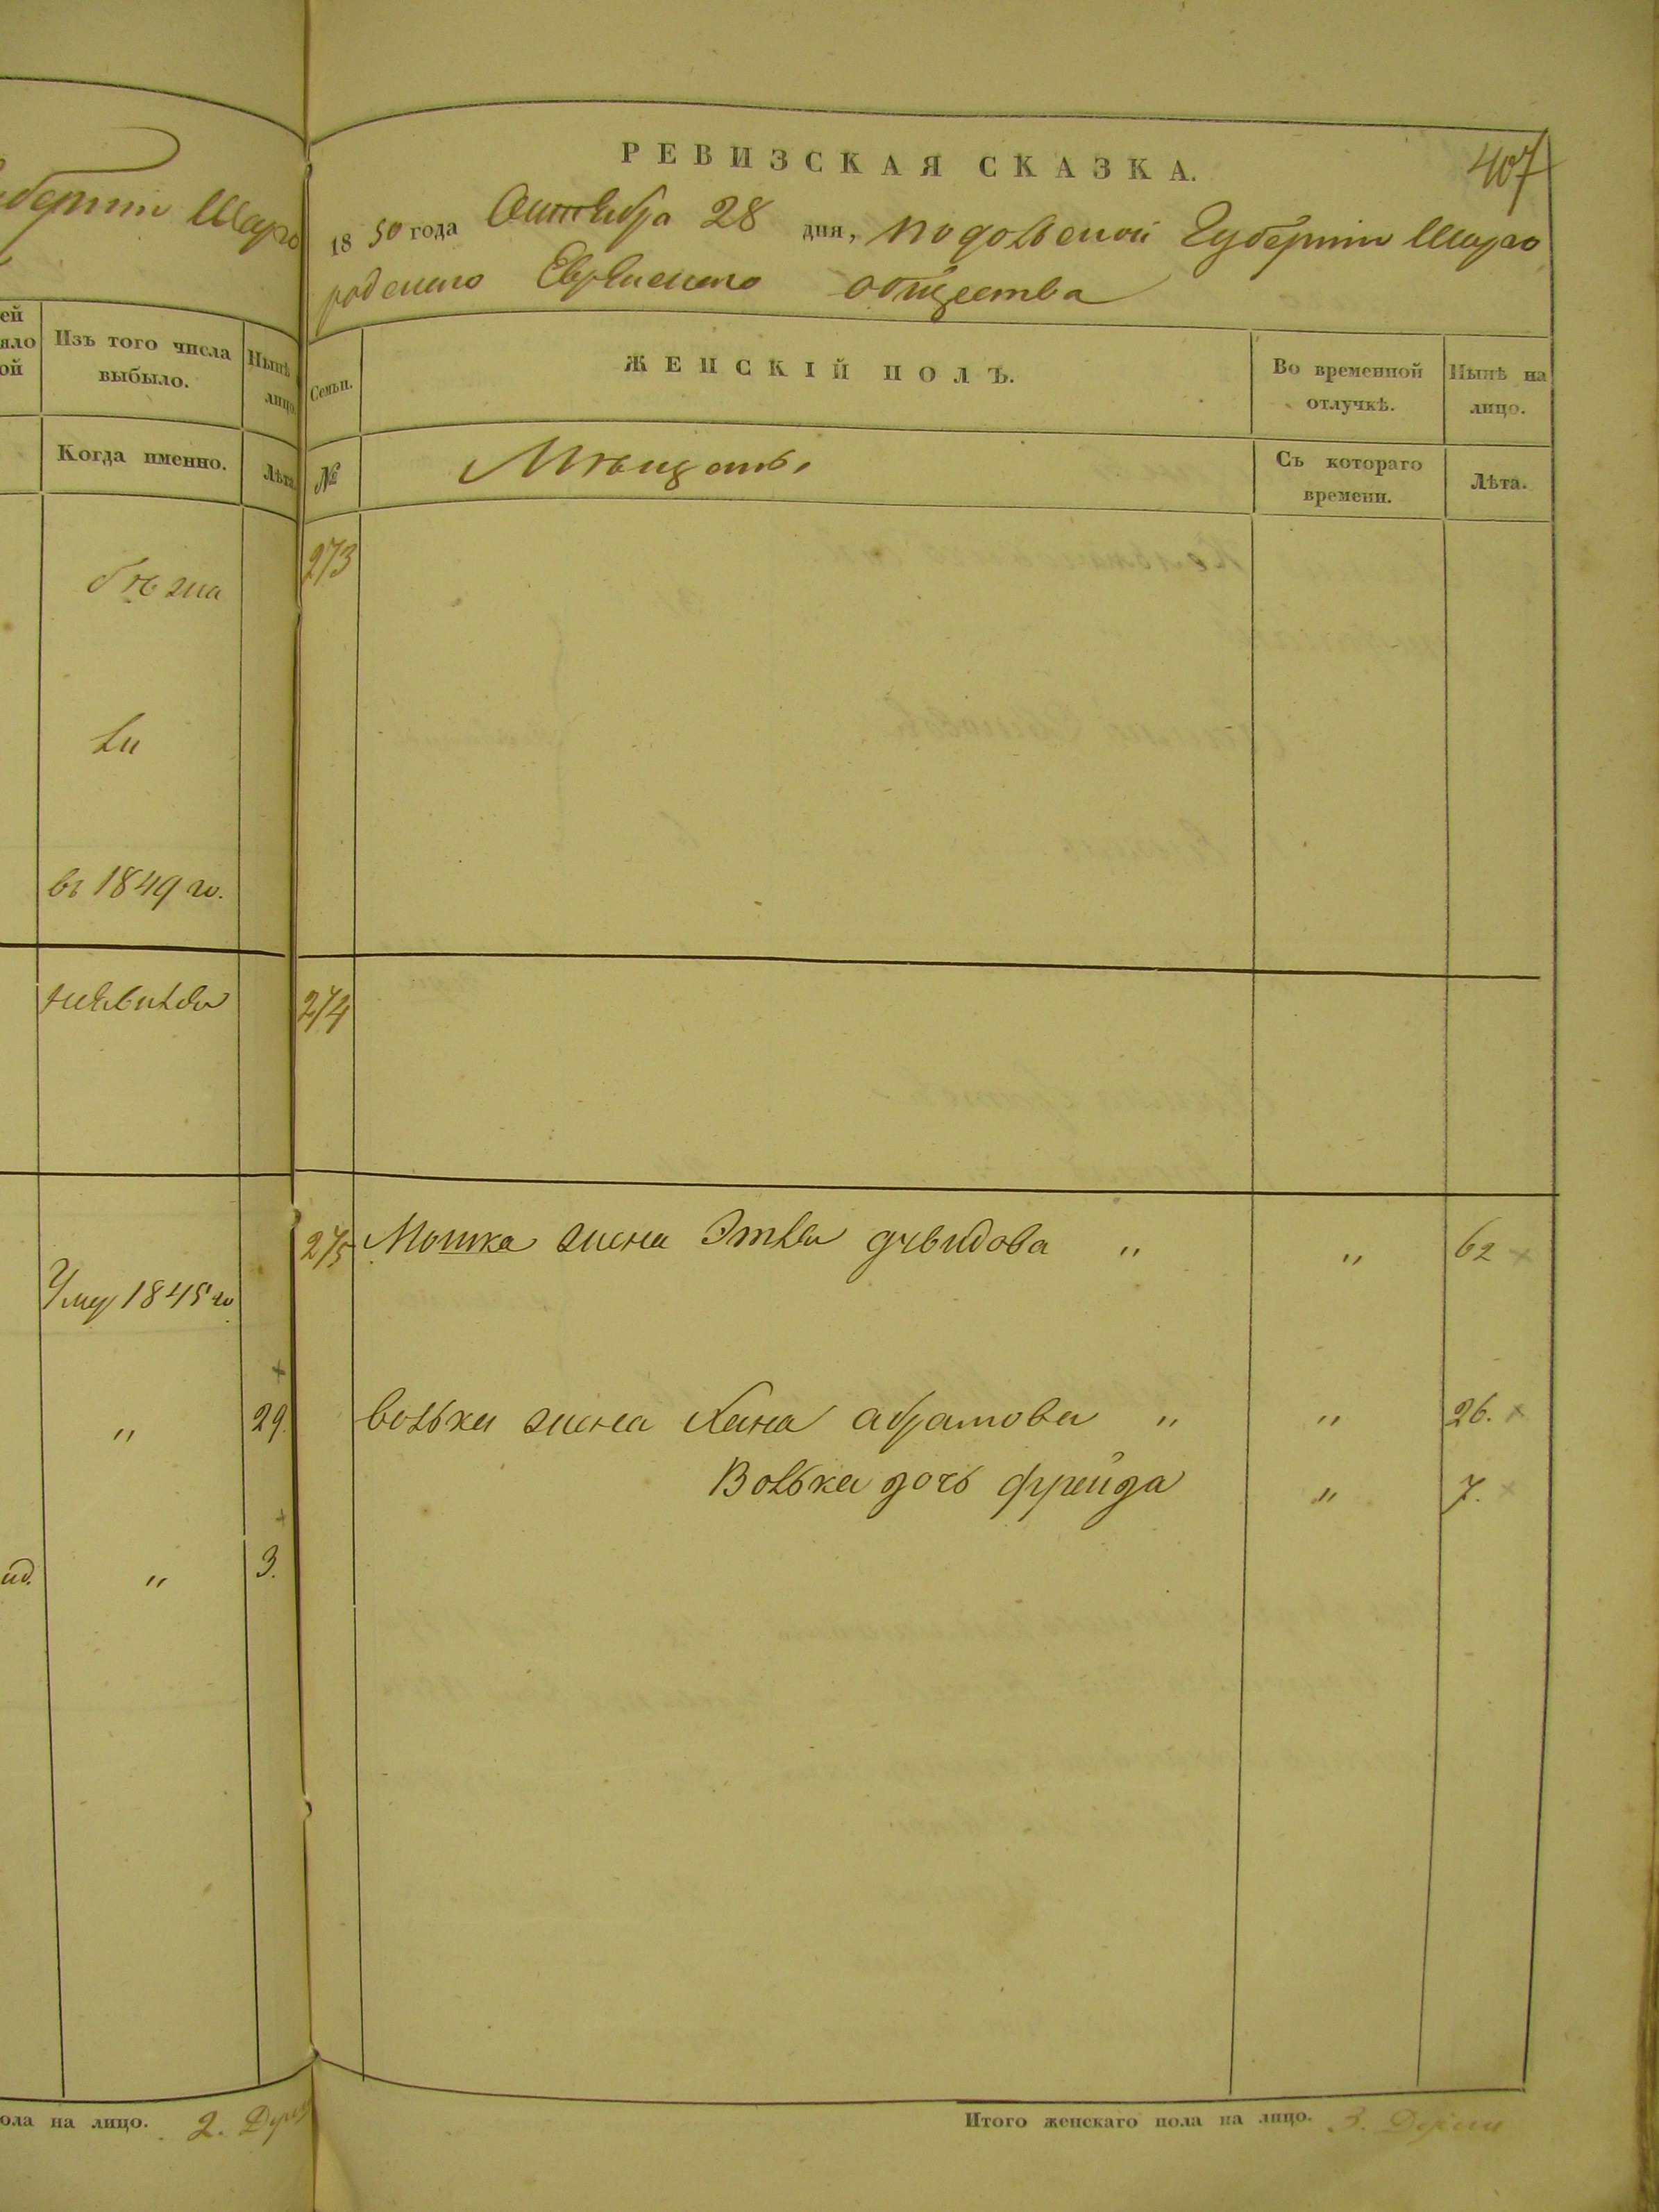 губерніи Шарго
ей
яло
ой
Изъ того числа
выбыло.
Нынѣ
лицо.
Когда именно.
Лѣта.
въ 1849 го.
Умер 1845 го
„ 29.
ид. „ 3.
ола на лицо. 2. Души
407
РЕВИЗСКАЯ СКАЗКА.
1850 года Октября 28 дня, подольской Губерніи Шарго
родскаго Еврейскаго общества
Семьи.
ЖЕНСКІЙ ПОЛЪ.
Во временной
отлучкѣ.
Нынѣ на
лицо.
№
Мѣщанъ
Съ котораго
времени.
Лѣта.
273
274
275 Мошка жена Этля дувидова „ „ 62
вольки жена Хана абрамова „ „ 26.
Вольки дочь фрейда „ 7.
Итого женскаго пола на лицо. 3. Души